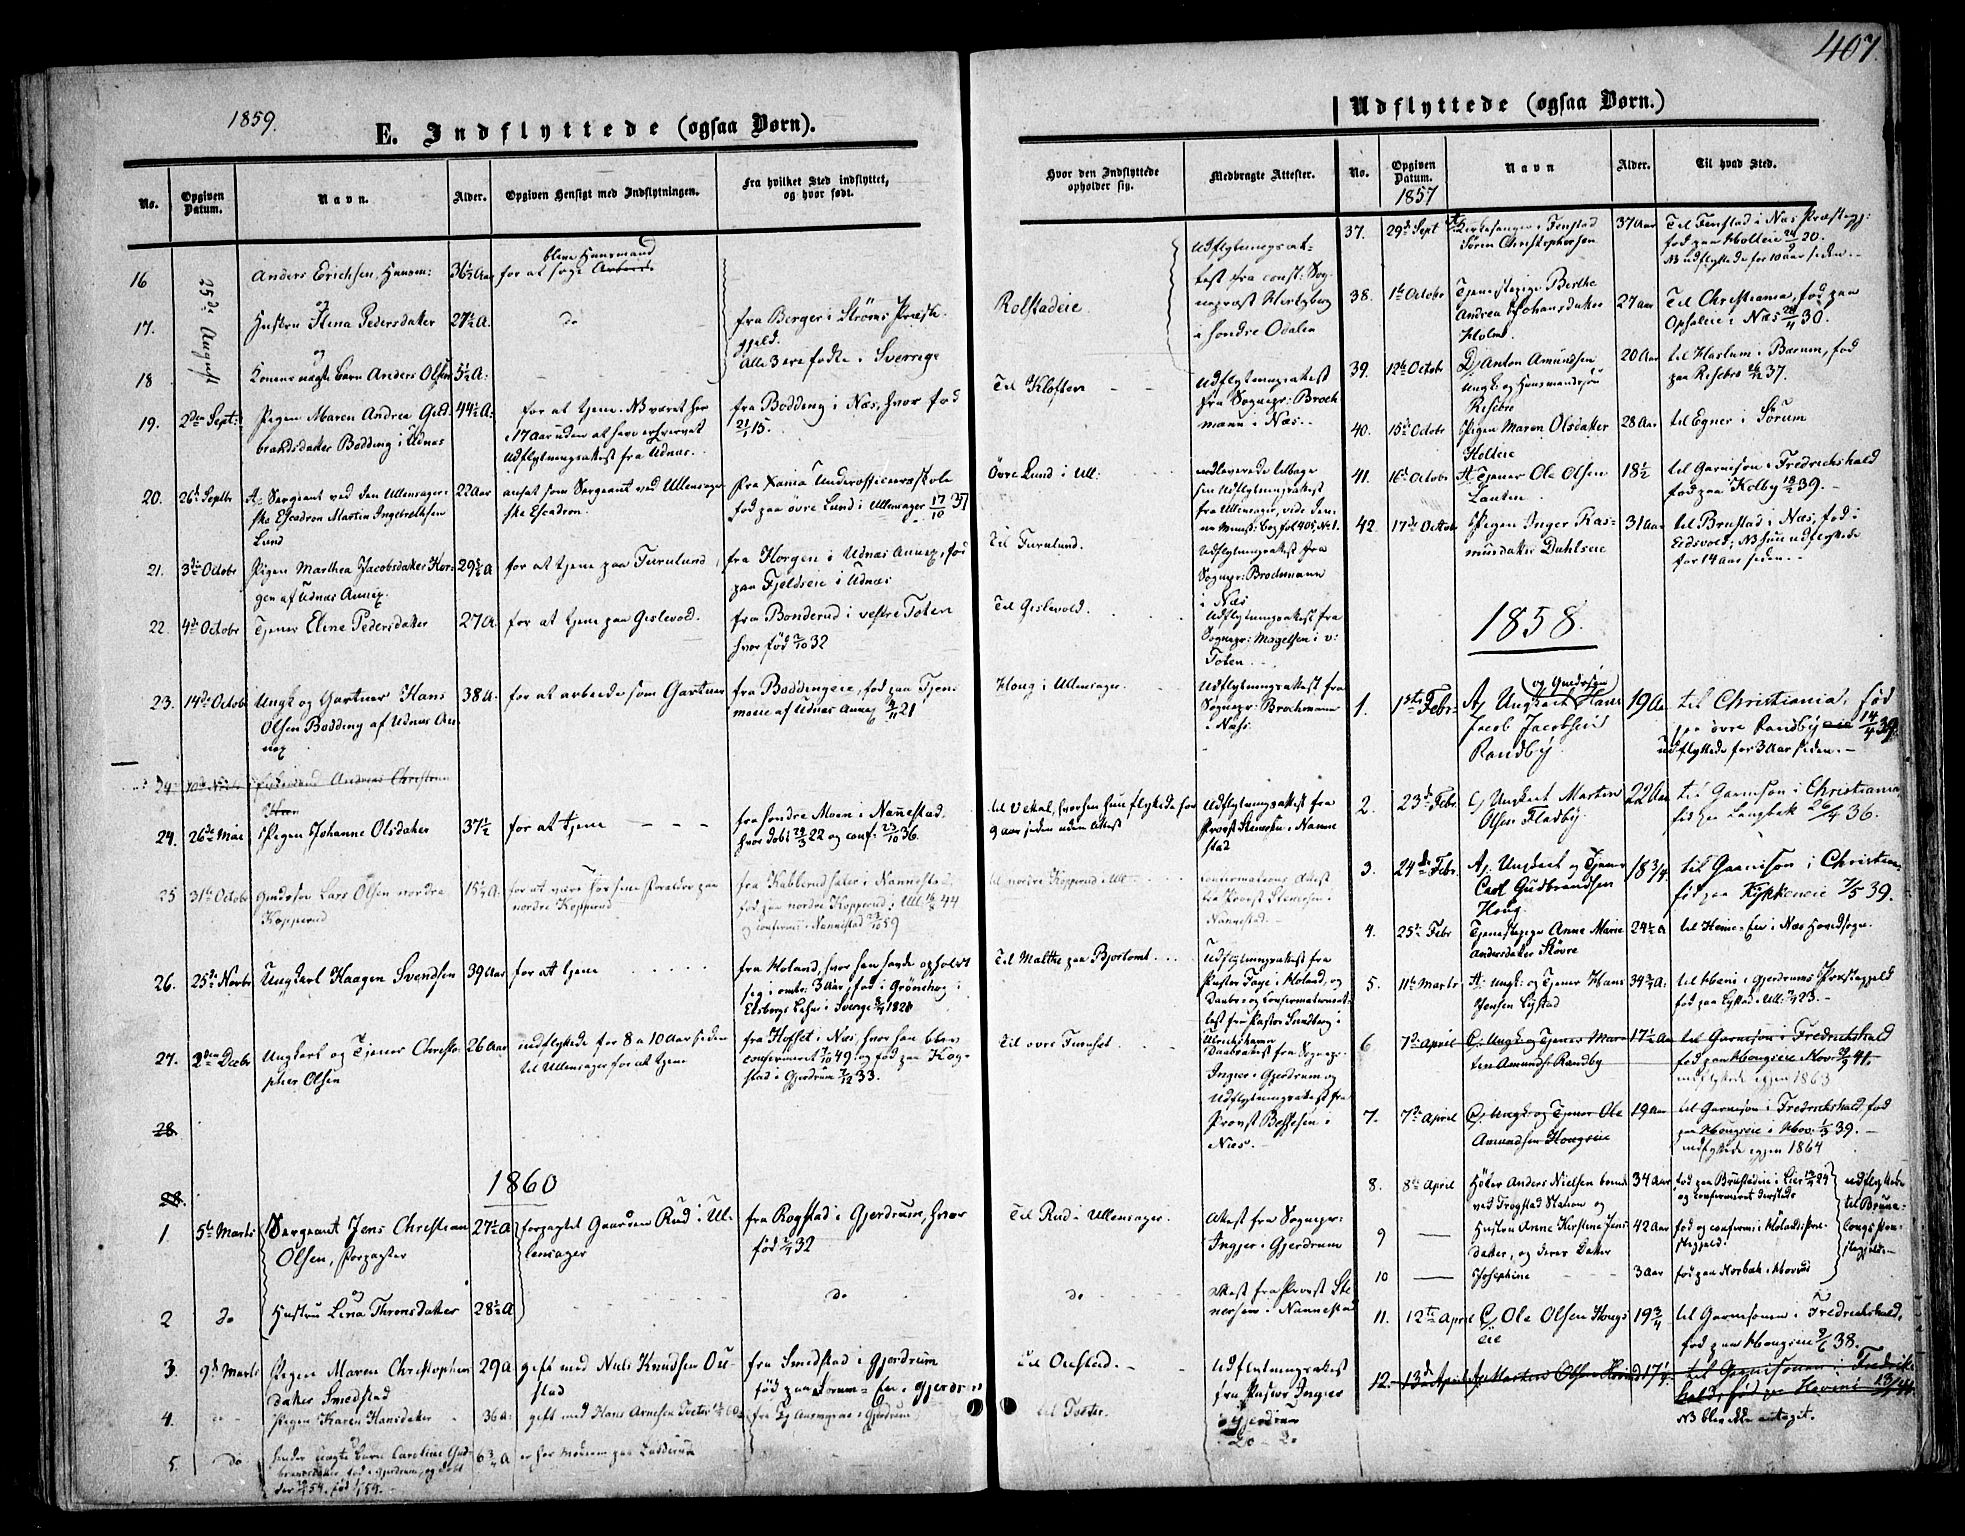 407.
1859.
E. Indflyttede (ogsaa Børn).
No.
Opgiven Datum.
Navn.
Alder.
Opgiven Hensigt med Indflytningen.
Fra hvilket Sted indflyttet, og hvor født.
Hvor den Indflyttede opholder sig.
Medbragte Attester.
16
25de August
Anders Erichsen, Huusm:
36½ Aar
blive Huusmand
for at søge Arbeide
17.
og
Hustru Stena Pedersdatter
27½ A.
do
fra Berger i Strøms Præste-
gjeld.
Alle 3 ere fødte i Sverrige
Rolstadeie
Udflytningsat-
test fra const: Sog-
nepræst Hertzberg
i søndre Odalen
18
og
Konens uægte Barn Anders Olsen
5½ A:
19.
2den Sept:
Pigen Maren Andrea Gud-
brandsdatter Bodding i Udnæs
44½ A:
for at tjene. NB været her
i 17 Aar uden at have erhvervet
Udflytningsattest fra Udnæs.
fra Bodding i Næs, hvor fød
21/1 15.
Til Kløften
Udflytningsattest
fra Sognepr: Broch
mann i Næs.
20.
26de Septbr
A, Sergeant ved den Ullensager-
ske Escadron Martin Ingebrethsen
Lund
22 Aar
ansat som Sergeant ved Ullensager
ske Escadron.
fra Xania Underofficeersskole
fød paa øvre Lund i Ullensager 17/10 37
Övre Lund i Ull:
21.
3die Octobr
Pigen Marthea Jacobsdatter Hor-
gen af Udnæs Annex.
29½ A
for at tjene paa Furulund
fra Horgen i Udnæs Annex, fød
paa Fjeldseie i Udnæs
til Furulund.
Udflytningsattest fra
Sognepr: Brochmann
i Næs
22.
4de Octobr
Tjener Eline Pedersdatter
27 A.
for at tjene paa Gislevold.
fra Bonderud i vestre Toten
hvor fød 2/10 32
Til Gislevold.
Udflytningsattest fra
Sognepr: Magelsen i v:
Toten.
23.
14de Octobr
Ungk og Gartner Hans
Olsen Bodding af Udnæs An
nex
38 A.
for at arbeide som Gartner
fra Boddingeie, fød paa Tjen-
moeie af Udnæs Annex 9/11 21
Houg i Ullensager.
Udflytningsattest fra
Sognepr: Brochmann
i Næs.
24.
26de Mai
Pigen Johanne Olsdatter
37½
for at tjene
fra søndre Moen i Nannestad
hvor døbt 24/3 22 og conf: 23/10 36.
til Vekal, hvorhen hun flyttede for
9 aar siden uden Attest
Udflytningsattest fra
Provst Stenersen i Nanne
stad
25
31te Octobr
Gudssøn Lars Olsen nordre
Kopperud
15¼ A.
for at være hos sine Forældre paa
nordre Kopperud
fød paa nordre Kopperud i Ull 16/8 44
og confirm: i Nannestad 23/10 59
til nordre Kopperud i Ull
confirmations Attest
fra Provst Stenersen i
Nannestad.
26.
25de Novbr
Ungkarl Haagen Svendsen
39 Aar
for at tjene
fra Høland, hvor han havde opholdt
sig i omtr: 3 Aar, fød i Grönshog i
Elsborgs Lehn i Sverige 5/4 1820
Til Malthe paa Bjortomt
Udflytningsattest fra
Pastor Faye i Høland, og
Daabs- og Confirmationsat-
test fra Pastor Sundberg i
Ulrichshamn
27.
2den Decbr
Ungkarl og Tjener Christo-
pher Olsen
26 Aar
udflyttede for 8 a 10 Aar siden
til Ullensager for at tjene
fra Hoffset i Næs, hvor han blev
confirmeret 7/10 49, og fød paa Rog-
stad i Gjerdrum 2/12 33.
til øvre Furuset
Daabsattest fra Sognepr:
Ingier i Gjerdrum og
Udflytningsattest fra
Provst Bessesen i
Næs.
28.
1860
28.
1
5te Marts
Sergeant Jens Christian
Olsen, Forpagter
27½ A
forpagtet Gaarden Rud i Ul-
lensager
fra Rogstad i Gjerdrum, hvor
fød 2/7 32
Til Rud i Ullensager.
Attest fra Sognepr:
Ingier i Gjerdrum
2
do
og
Hustru Lina Thronsdatter
28½ A
do
do
Attest fra Provst Ste
nersen i Nannestad
3.
9de Marts
Pigen Maren Christophers
datter Smedstad
29 A
gift med Niels Knudsen Ou-
stad
fra Smedstad i Gjerdrum
fød paa Forum-Eie i Gjerdrum
til Oustad.
Udflytningsattest
fra Pastor Ingier
i Gjerdrum
4.
do
Pigen Karen Hansdatter
36 A.
gift med Hans Arnesen Toeter
til Toeter.
do - do
5.
do
hendes uægte Barn Caroline Gud-
brandsdatter, fød i Gjerdrum, og døbt
6¾ A
er hos Moderen paa
Udflyttede (ogsaa Børn.)
No.
Opgiven Datum.
Navn
Alder.
Til hvad Sted.
1857
37.
29de Sept
Kirkesanger i Fenstad
Søren Christophersen
37 Aar
Til Fenstad i Næs Præstegj:
fød paa Holteie 24/10 20.
NB udflyttede for 10 aar siden.
38.
1te Octobr
Tjenestepige Berthe
Andrea Johansdatter
Holm
27 aar
Til Christiania, fød paa
Opsaleie i Næs 20/4 30.
39.
12te Octobr
D, Anton Amundsen
Ungk: og Huusmandssøn
Risebro
20 Aar
til Haslum i Bærum, fød
paa Risebro 26/12 37.
40.
15de Octobr
Pigen Maren Olsdatter
Holteie
28 Aar
til Egner i Sørum
41.
16de Octobr
A Tjener Ole Olsen
Lauten
18½
til Garnison i Fredrichshald
fød paa Kolby 19/2 39.
42.
17de Octobr
Pigen Inger Ras-
musdatter Dahlseie
31 aar
til Brustad i Næs, fød i
Eidsvold; NB hun udflyttede
for 14 aar siden.
1858.
1.
1ste Febr.
A, Ungkarl og Gudssøn Hans
Jacob Jacobsen
Randby
19 A
til Christiania, fød
paa øvre Randby eie 14/4 39.
udflyttede for 3 Aar siden.
2.
23de Febr.
C, Ungkarl Morten
Olsen Fladby.
22 Aar
til Garnison i Christiania
fød paa Langbak 26/4 36.
3.
24de Febr.
A, Ungkarl og Tjener
Carl Gudbrandsen
Houg.
18¾
til Garnison i Christian-
fød paa Kykkeneie 7/5 39.
4.
25de Febr
Tjenestepige Anne Marie
Andersdatter Skovre
24½ a
til Heine-Eie i Næs Hovedsogn.
5.
11te Marts
A, Ungk: og Tjener Hans
Jensen Lystad
34¾ A:
til Hæni i Gjerdrums Præstegjeld
fød paa Lystad i Ull: 7/7 23.
6
7de April
C, Ungk og Tjener Mor
ten Amundsen Randby
17½ Aar
til Garnison i Fredrichshald
fød paa Hougseie i Hov: 20/9 41.
indflyttede igjen 1863
7.
7de April
C, Ungk: og Tjener Ole
Amundsen Hougseie
19 Aar
til Garnison i Fredrichshald, fød
paa Hougseie i Hov. 1/3 39.
indflyttede igjen 1864
8.
8de April
Høker Anders Nielsen boend
ved Trøgstad Station og
34 Aar
fød paa Brustadeie i Lier 13/7 24
og confirmeret dersteds
udflyttede
til Brune-
lougs Præ-
stegjeld.
9
Hustru Anne Kirstine Jens-
datter, og deres Datter
42 Aar
fød og confirm: i Hölands Præ-
stegjeld.
10
Josephine
3 Aar
fød paa Norbak i Hovind
11.
12te April
C, Ole Olsen Hougs
eie
19¾
til Garnisonen i Fredrichshald,
fød paa Hougseie 9/6 38.
12.
13de April
A, Morten Olsen Hovind
17¼
til Garnisonen i Fredriks-
hald, fød paa Hovind 13/1 41.
NB blev ikke antaget.